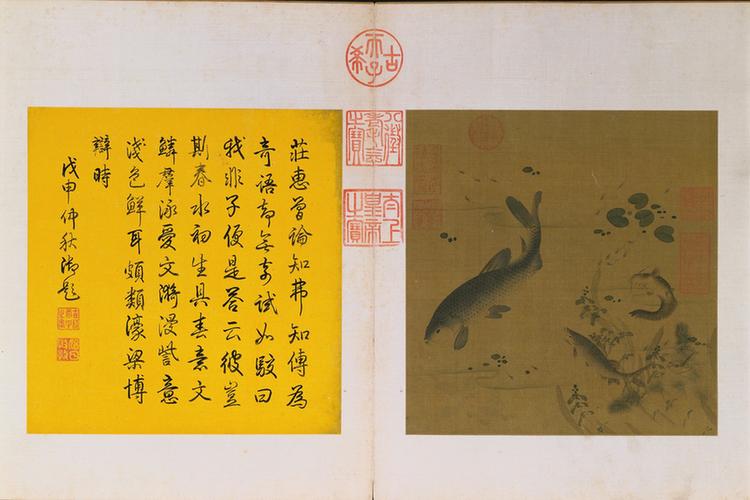 莊惠曾論知弗知傳為
奇語却無奇試如駁曰
我非子便是答云彼豈
斯春水初生具意文
鱗羣泳愛文漪漫訾意
淺色鮮耳頗類濠梁博
辯時
戊申仲秋御題
古希天子
八徵耄念之寶
太上皇帝之寶